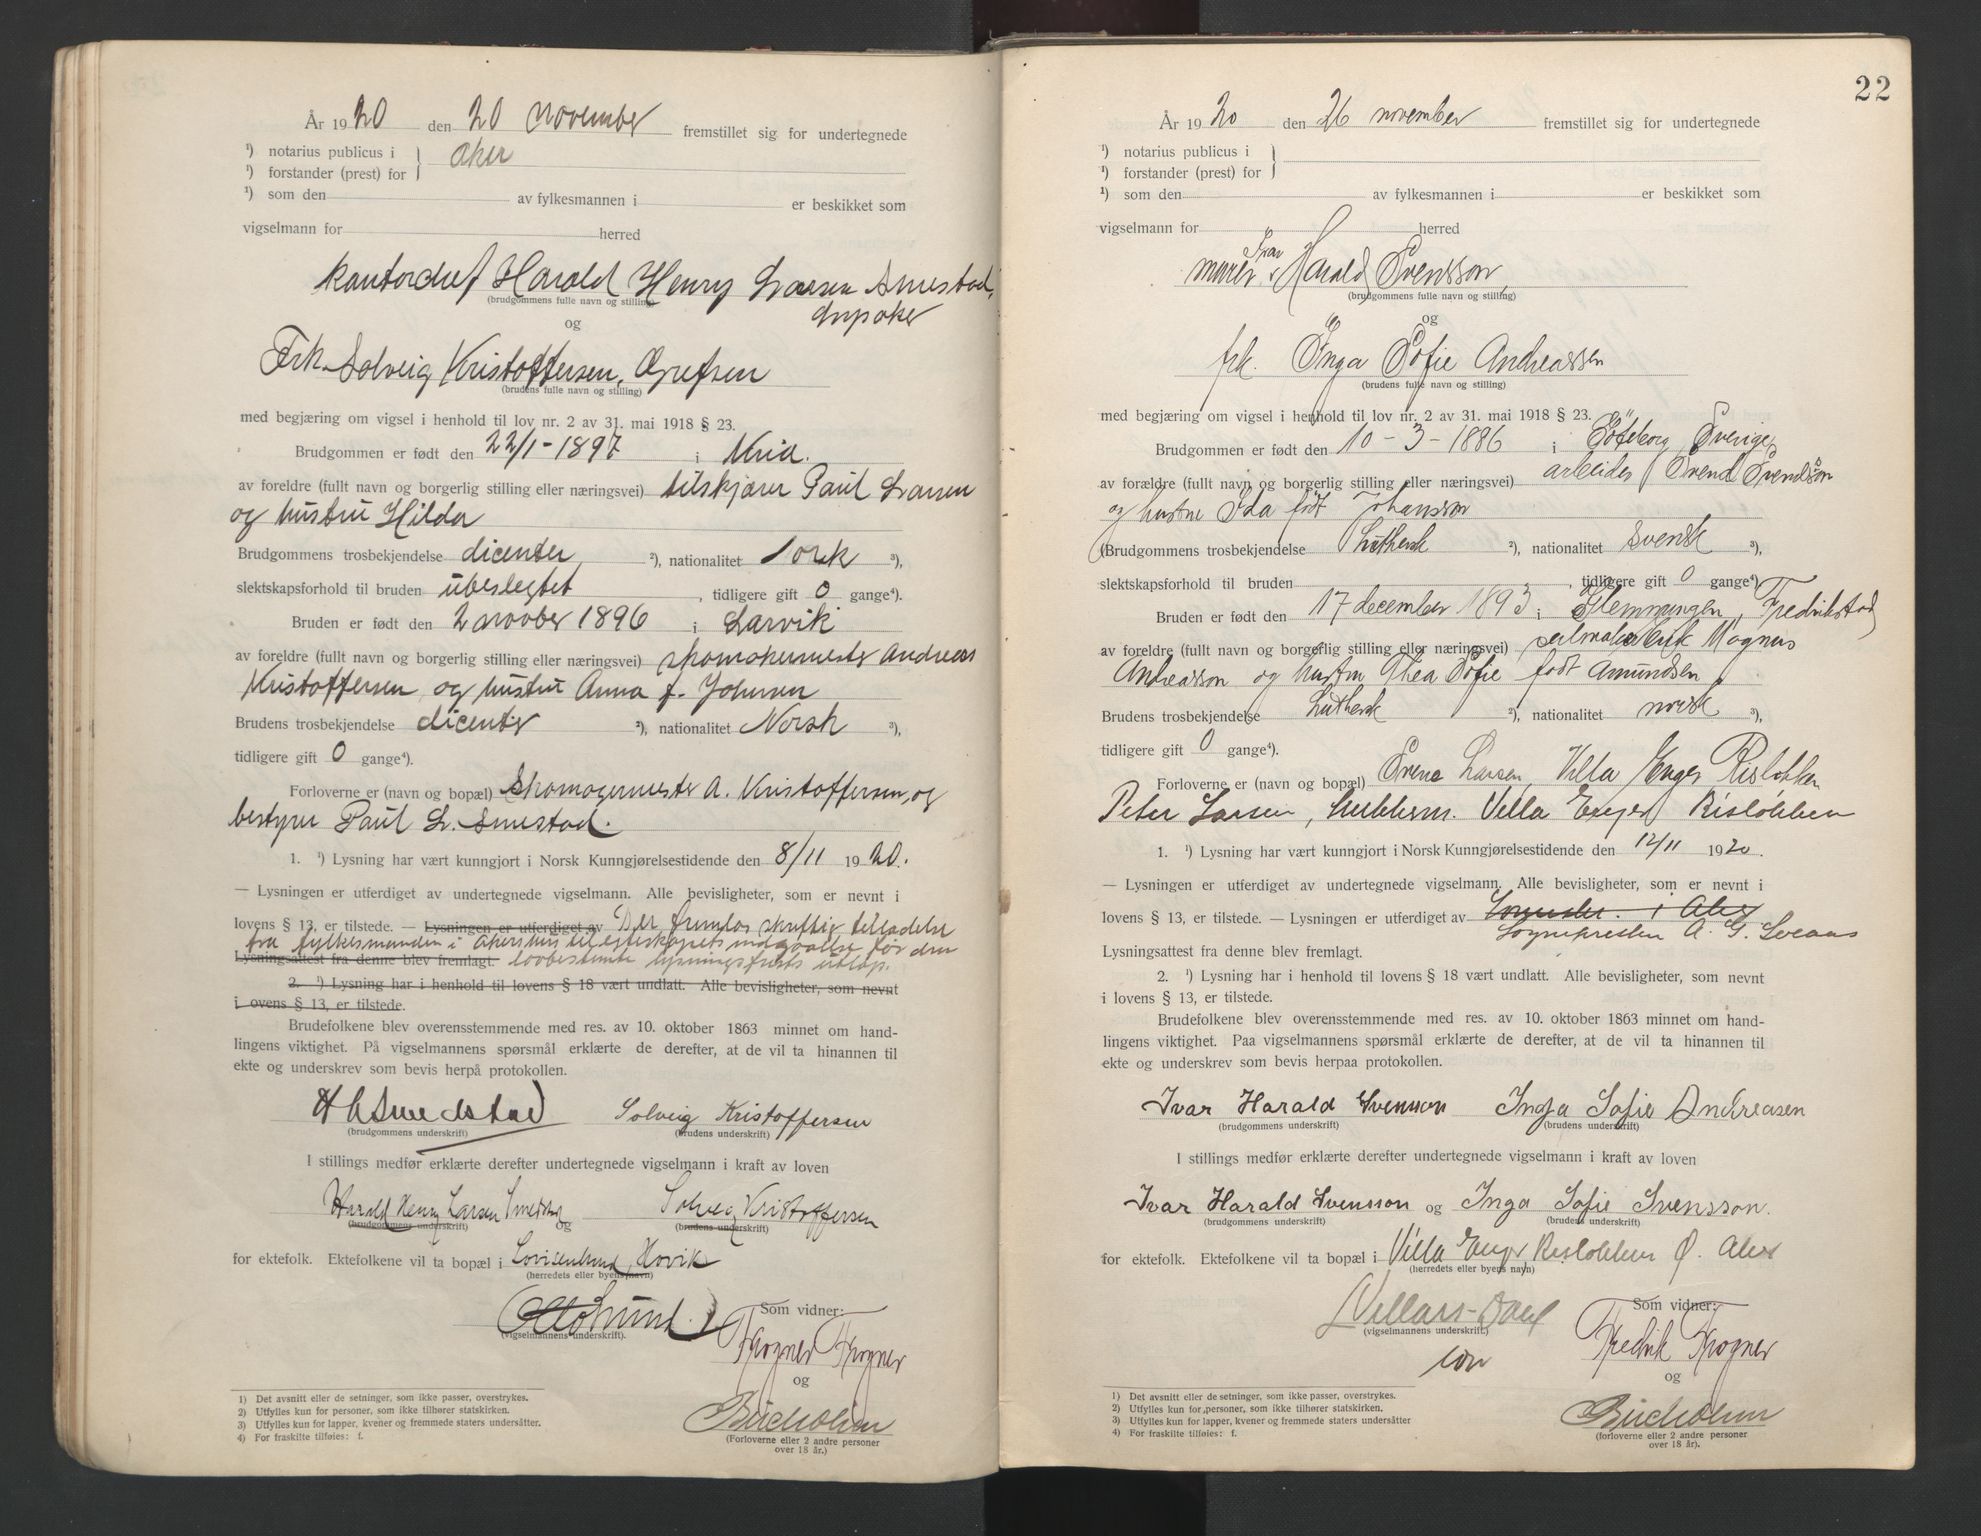 År 1920 den 20 november fremstillet sig for undertegnede
¹) notarius publicus i } Aker
¹) forstander (prest) for
¹) som den av fylkesmannen i er beskikket som
vigselmann for herred
Harald Henry Larsen Smestad,
(brudgommens fulle navn og stilling)
og
Frk. Solveig Kristoffersen, Grefsen
(brudens fulle navn og stilling)
med begjæring om vigsel i henhold til lov nr. 2 av 31. mai 1918 § 23.
Brudgommen er født den 22/1-1897 i Kria.
av foreldre (fullt navn og borgerlig stilling eller næringsvei) tilskjærer Paul Larsen
og hustru Hilda
Brudgommens trosbekjendelse dicenter ²), nationalitet norsk ³),
slektskapsforhold til bruden ubeslegtet, tidligere gift 0 gange⁴).
Bruden er født den 2 novbr 1896 i Larvik
av foreldre (fullt navn og borgerlig stilling eller næringsvei) skomakermester Andreas
Kristoffersen og hustru Anna f. Johnsen
Brudens trosbekjendelse dicenter ²), nationalitet Norsk ³),
tidligere gift 0 gange⁴).
Forloverne er (navn og bopæl) Skomagermester A. Kristoffersen, og
bestyrer Paul L. Smestad.
1. ¹) Lysning har vært kunngjort i Norsk Kunngjørelsestidende den 8/11 1920.
— Lysningen er utferdiget av undertegnede vigselmann. Alle bevisligheter, som er nevnt i
lovens § 13, er tilstede. — Lysningen er utferdiget av Der fremlos skriftlig tilladelse
fra fylkesmanden i Akershus til egteskapets indgaaelse før den
Lysningsattest fra denne blev fremlagt. lovbestemte lysningsfrists utløp.
2. ¹) Lysning har i henhold til lovens § 18 vært undlatt. Alle bevisligheter, som nevnt
i lovens § 13, er tilstede.
Brudefolkene blev overensstemmende med res. av 10. oktober 1863 minnet om hand-
lingens viktighet. På vigselmannens spørsmål erklærte de derefter, at de vil ta hinannen til
ekte og underskrev som bevis herpå protokollen.
H L Smedstad Solveig Kristoffersen
(brudgommens underskrift) (brudens underskrift)
I stillings medfør erklærte derefter undertegnede vigselmann i kraft av loven
Harald Henry Larsen Smedstad og Solveig Kristoffersen
(brudgommens underskrift) (brudens underskrift)
for ektefolk. Ektefolkene vil ta bopæl i Lovisenlund, Høvik
(herredets eller byens navn)
(vigselmannens underskrift). Som vidner:
Thogner Thogner
og
Bucholm
¹) Det avsnitt eller de setninger, som ikke passer, overstrykes.
²) Utfylles kun for personer, som ikke tilhører statskirken.
³) Utfylles kun for lapper, kvener og fremmede staters undersåtter.
⁴) For fraskilte tilføies: f.
(Forloverne eller 2 andre personer
over 18 år.)
22
År 1920 den 26 november fremstillet sig for undertegnede
¹) notarius publicus i }
¹) forstander (prest) for
¹) som den av fylkesmannen i er beskikket som
vigselmann for herred
Ivar
murer Harald Svensson,
(brudgommens fulle navn og stilling)
og
frk. Inga Sofie Andreassen
(brudens fulle navn og stilling)
med begjæring om vigsel i henhold til lov nr. 2 av 31. mai 1918 § 23.
Brudgommen er født den 10-3-1886 i Göteborg, Sverige,
av forældre (fullt navn og borgerlig stilling eller næringsvei) arbeider Svend Svendson
og hustru Ida født Johansson
(Brudgommens trosbekjendelse Luthersk ²), nationalitet svensk ³),
slektskapsforhold til bruden , tidligere gift 0 gange⁴)
Bruden er født den 17 december 1893 i Glemmingen, Fredrikstad
av foreldre (fullt navn og borgerlig stilling eller næringsvei) seilmaker Erik Magnus
Andreasson og hustru Thea Sofie født Amundsen
Brudens trosbekjendelse Luthersk ²), nationalitet norsk ³),
tidligere gift 0 gange⁴).
Forloverne er (navn og bopæl) Larsen, Villa Enger Risløkken
Peter Larsen, Villa Enger Risløkken
1. ¹) Lysning har vært kunngjort i Norsk Kunngjørelsestidende den 12/11 1920.
— Lysningen er utferdiget av undertegnede vigselmann. Alle bevisligheter, som er nevnt i
lovens § 13, er tilstede. — Lysningen er utferdiget av i Aker
Sognepresten A. G. Sveaas
Lysningsattest fra denne blev fremlagt.
2. ¹) Lysning har i henhold til lovens § 18 vært undlatt. Alle bevisligheter, som nevnt
i lovens § 13, er tilstede.
Brudefolkene blev overensstemmende med res. av 10. oktober 1863 minnet om hand-
lingens viktighet. Paa vigselmannens spørsmål erklærte de derefter, at de vil ta hinannen til
ekte og underskrev som bevis herpaa protokollen.
Ivar Harald Svensson Inga Sofie Andreasen
(brudgommens underskrift) (brudens underskrift)
I stillings medfør erklærte derefter undertegnede vigselmann i kraft av loven
Ivar Harald Svensson og Inga Sofie Svensson.
(brudgommens underskrift) (brudens underskrift)
for ektefolk. Ektefolkene vil ta bopæl i Villa Enger, Risløkken Ø. Aker
(herredets eller byens navn)
(vigselmannens underskrift.) Som vidner:
Fredrik Thogner
og
Bucholm
¹) Det avsnitt eller de setninger, som ikke passer, overstrykes.
²) Utfylles kun for personer, som ikke tilhører statskirken.
³) Utfylles kun for lapper, kvener og fremmede staters undersåtter
⁴) For fraskilte tilføies: f.
(forloverne eller 2 andre personer
over 18 år).